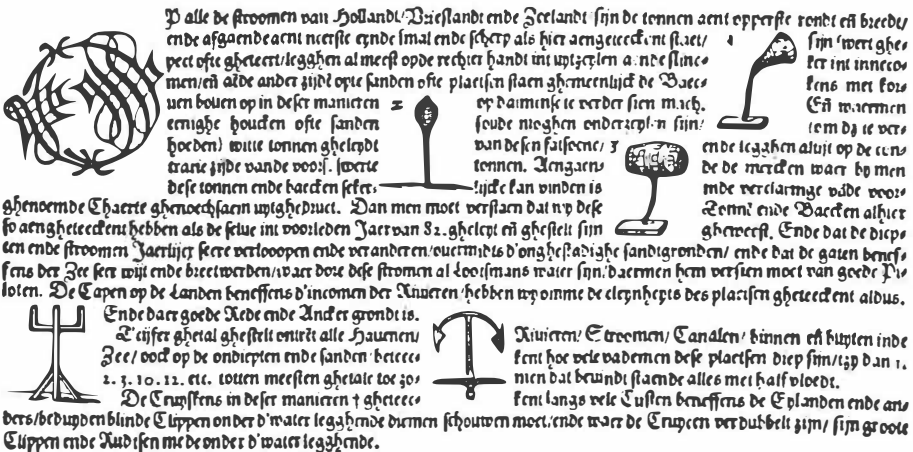 OP alle de stroomen van Hollandt/ Vrieslandt ende Zeelandt sijn de tonnen aent opperste rondt eñ breedt/
ende afgaende aent neerste eynde smal ende scherp als hier aengeteeckent staet/ 1 sijn swert ghe=
pect ofte gheteert/ legghen al meest op de rechter handt int uptzeylen ende slinc= ker int inneco=
men/ eñ alde ander zijdt opte sanden ofte plaetsen staen ghemeenlijck de Baec= kens met kor=
uen bouen op in deser manieren 2 op datmense te verder sien mach. Eñ waermen
eenighe houcken ofte sanden soude moghen onderzeylen sijn/ 3 (om da te ver=
hoeden) witte tonnen gheleydt van desen fatsoene/ ende legghen altijt op de con=
trarie zijde vande voors. swerte tonnen. Aengaen= de de mercken waer by men
dese tonnen ende baecken seker= lijcke kan vinden is inde verclaringe vāde voor=
ghenoemde Chaerte ghenoechsaem uytghedruct. Dan men moet verstaen dat wy dese Tonnē ende Baecken alhier
so aengheteeckent hebben als de selue int voorleden Jaer van 82. gheleyt eñ ghestelt sijn gheweest. Ende dat de diep=
ten ende stroomen Jaerlijcx seere verlooopen ende veranderen/ ouermidts d'onghestadighe sandtgronden/ ende dat de gaten benef=
fens der Zee seer wijt ende breet werden/ waer dore dese stromen al Lootsmans water sijn/ daermen hem versien moet van goede Pi=
loten. De Capen op de Landen beneffens d'incomen der Riuieren/ hebben wy omme de cleynheyts des plaetsen gheteeckent aldus.
Ende daer goede Rede ende Ancker grondt is.
T'cijfer ghetal ghestelt omtrēt alle Hauenen/ Riuieren/ Stroomen/ Canalen/ binnen eñ buyten inde
Zee/ oock op de ondiepten ende sanden beteec= kent hoe vele vademen dese plaetsen diep sijn/ tzy dan 1.
2. 3. 10. 12. etc. totten meesten ghetale toe zo= men dat beuindt staende alles met half vloedt.
De Cruyskens in deser manieren † gheteec= kent langs vele Custen beneffens de Eylanden ende an=
ders/ beduyden blinde Clippen onder d'water legghende diemen schouwen moet/ ende waer de Cruycen verdubbelt zijn/ sijn groote
Clippen ende Rudtsen mede onder d'water legghende.